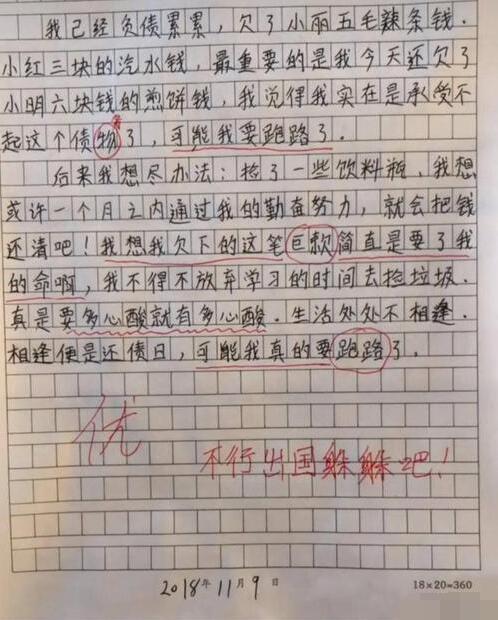 我已经负债累累，欠了小丽五毛辣条钱．
小红三块的汽水钱，最重要的是我今天还欠了
小明六块钱的煎饼钱，我觉得我实在是承受不
起这个债物了，可能我要跑路了．
后来我想尽办法：捡了一些饮料瓶，我想
或许一个月之内通过我的勤奋努力，就会把钱
还清吧！我想我欠下的这笔巨款简直是要了我
的命啊，我不得不放弃学习的时间去捡垃圾．
真是要多心酸就有多心酸．生活处处不相逢．
相逢便是还债日，可能我真的要跑路了．
优
不行出国躲躲吧！
2018年11月9日
18×20=360